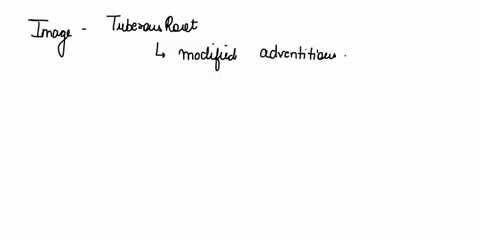 Image - Tuberous Root
↳ modified adventitious.